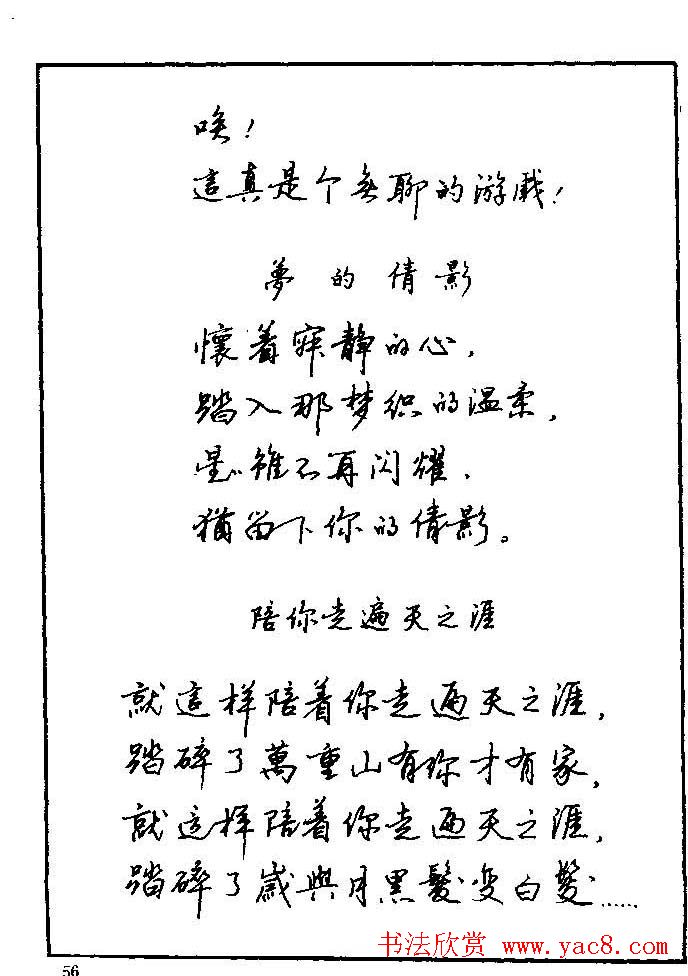 唉！
這真是个無聊的游戲！
夢的倩影
懷着寂靜的心，
踏入那梦织的温柔，
星心雖不再闪耀，
猶留下你的倩影。
陪你走遍天之涯
就這样陪着你走遍天之涯，
踏碎了萬重山有你才有家，
就這样陪着你走遍天之涯，
踏碎了歲與月黑髮变白髮……
书法欣赏 www.yac8.com
56